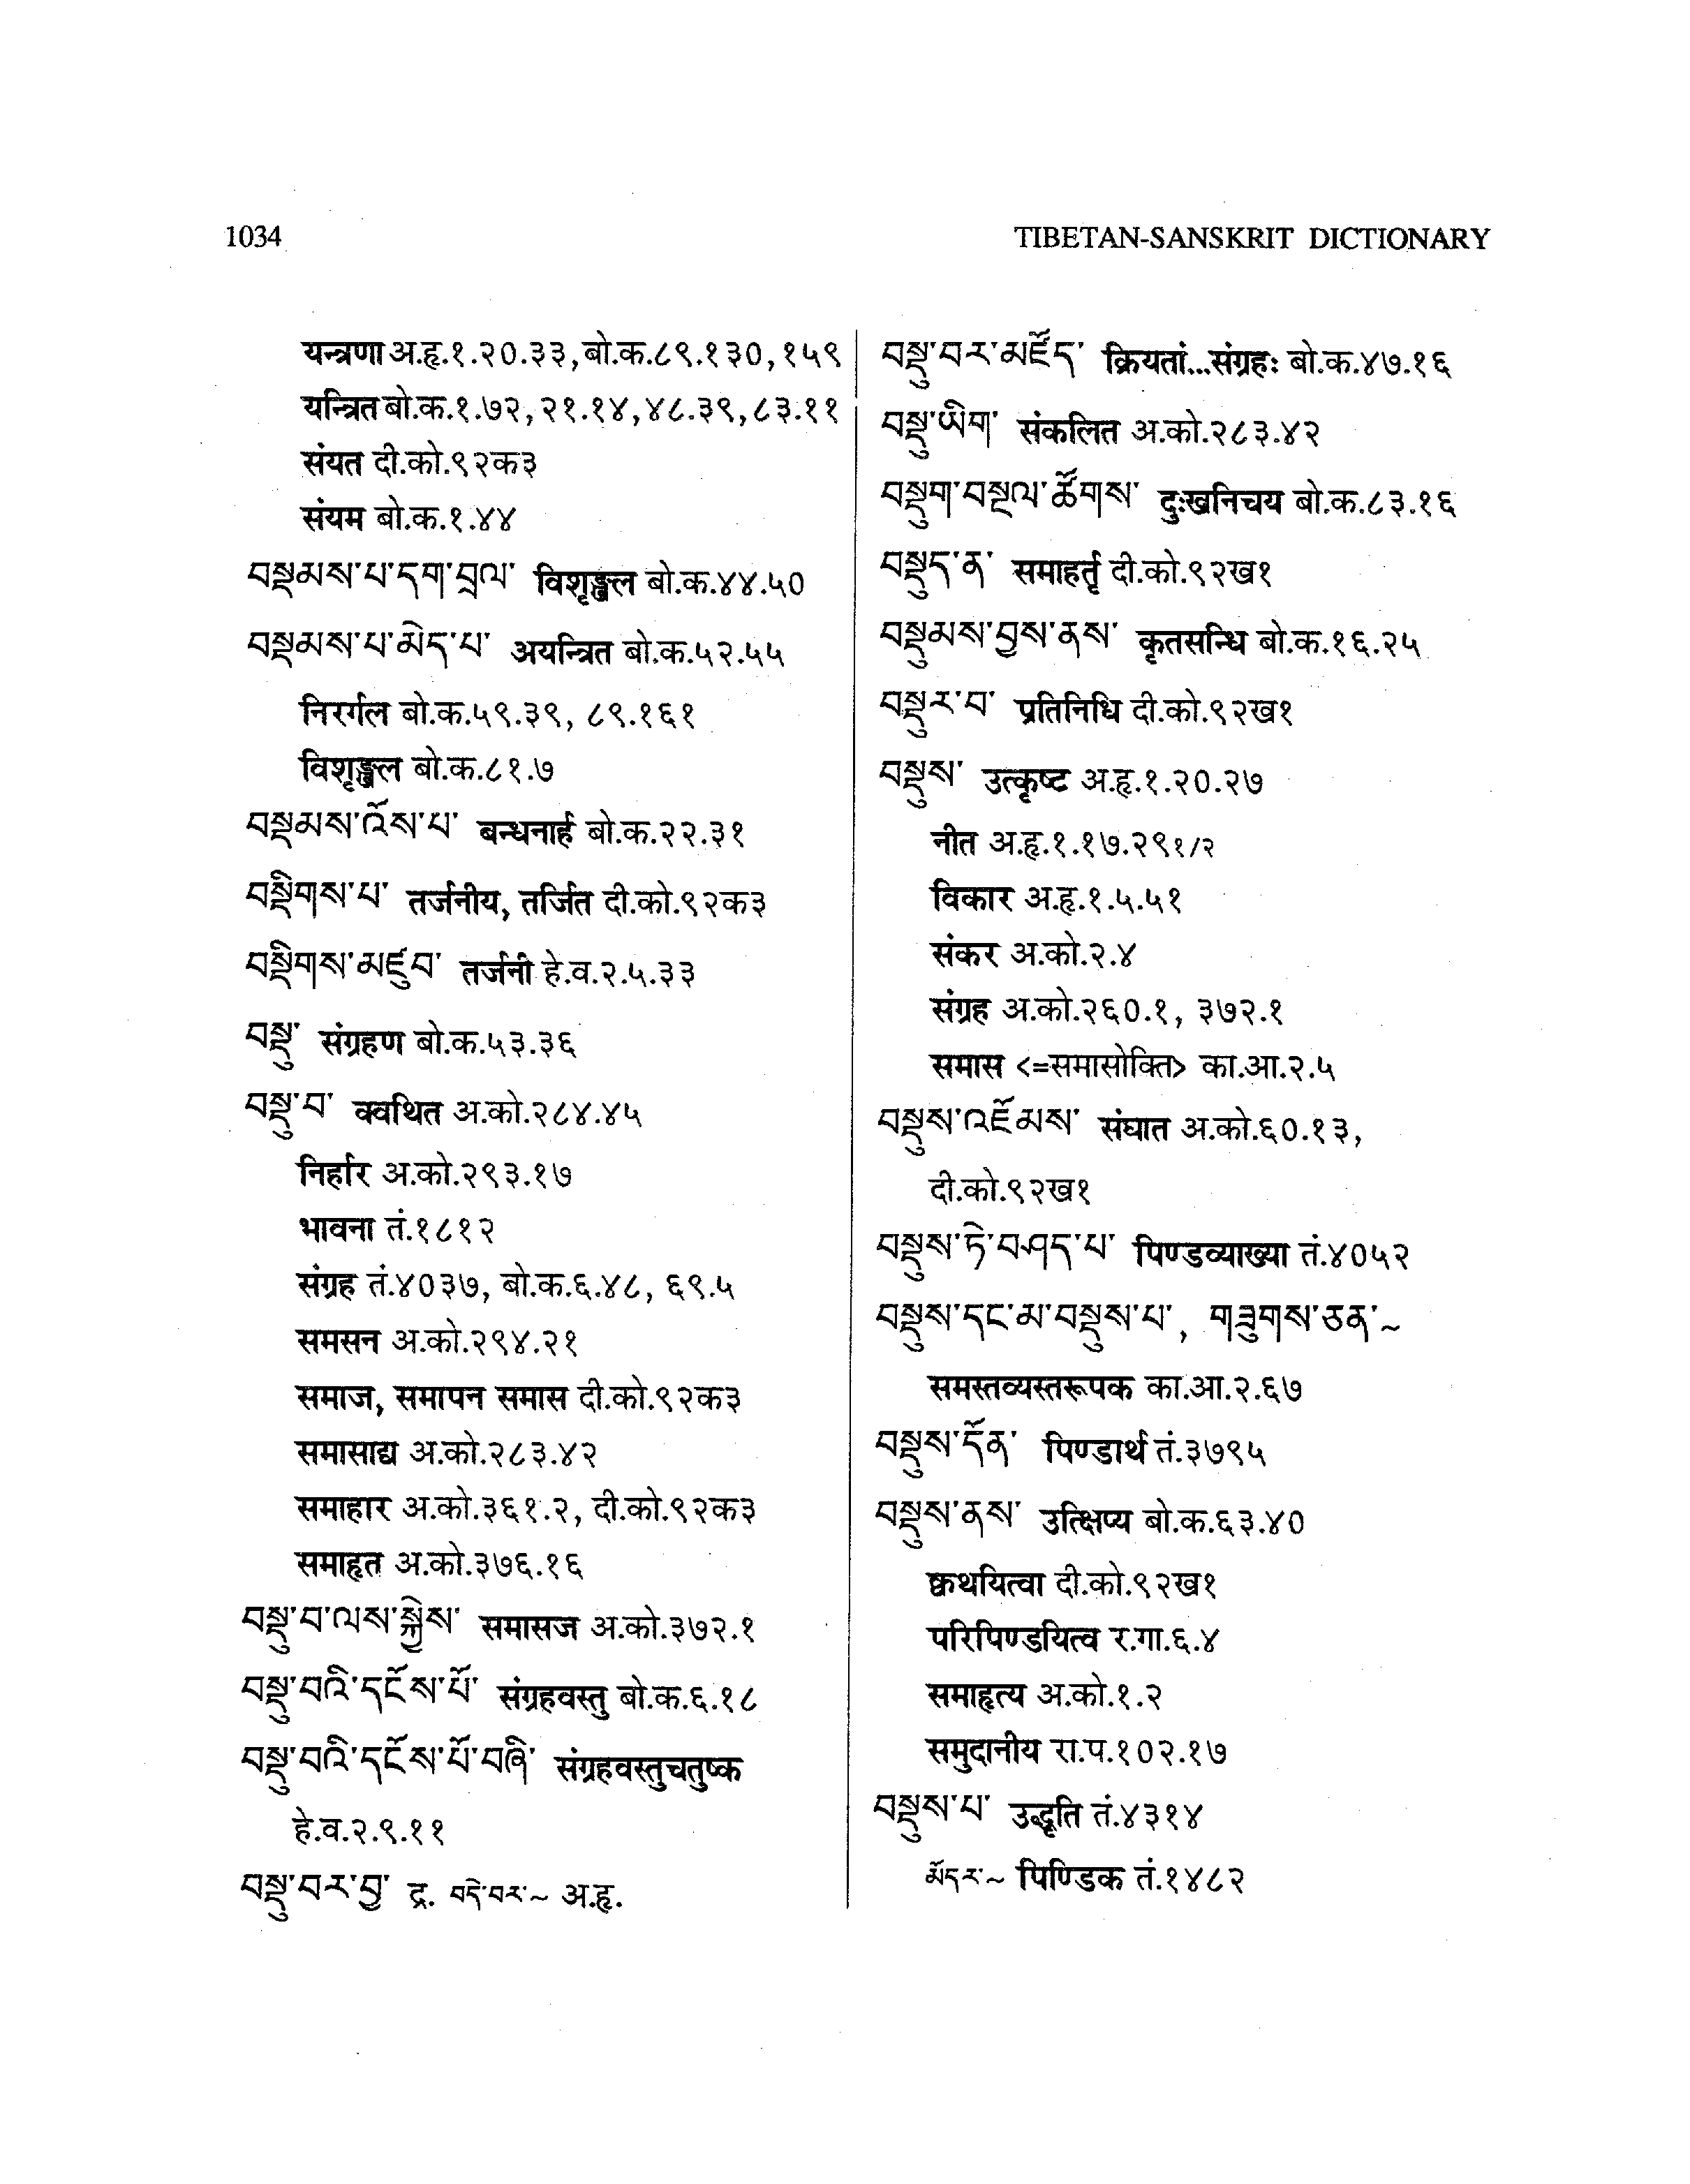 1034
TIBETAN-SANSKRIT DICTIONARY
यन्त्रणा अ.हृ.१.२०.३३, बो.क.८९.१३०, १५९
यन्त्रित बो.क.१.७२, २१.१४, ४८.३९, ८३.११
संयत दी.को.९२क३
संयम बो.क.१.४४
བསྡམས་པ་དག་བྲལ་ विशृङ्खल बो.क.४४.५०
བསྡམས་པ་མེད་པ་ अयन्त्रित बो.क.५२.५५
निरर्गल बो.क.५९.३९, ८९.१६१
विशृङ्खल बो.क.८१.७
བསྡམས་འོས་པ་ बन्धनार्ह बो.क.२२.३१
བསྡིགས་པ་ तर्जनीय, तर्जित दी.को.९२क३
བསྡིགས་མཛུབ་ तर्जनी हे.व.२.५.३३
བསྡུ་ संग्रहण बो.क.५३.३६
བསྡུ་བ་ क्वथित अ.को.२८४.४५
निर्हार अ.को.२९३.१७
भावना तं.१८१२
संग्रह तं.४०३७, बो.क.६.४८, ६९.५
समसन अ.को.२९४.२१
समाज, समापन समास दी.को.९२क३
समासाद्य अ.को.२८३.४२
समाहार अ.को.३६१.२, दी.को.९२क३
समाहृत अ.को.३७६.१६
བསྡུ་བ་ལས་སྐྱེས་ समासज अ.को.३७२.१
བསྡུ་བའི་དངོས་པོ་ संग्रहवस्तु बो.क.६.१८
བསྡུ་བའི་དངོས་པོ་བཞི་ संग्रहवस्तुचतुष्क
हे.व.२.९.११
བསྡུ་བར་བྱ་ द्र. བདེ་བར་~ अ.हृ.
བསྡུ་བར་མཛོད་ क्रियतां...संग्रहः बो.क.४७.१६
བསྡུ་ཡིག་ संकलित अ.को.२८३.४२
བསྡུག་བསྔལ་ཚོགས་ दुःखनिचय बो.क.८३.१६
བསྡུད་ན་ समाहर्तृ दी.को.९२ख१
བསྡུམས་བྱས་ནས་ कृतसन्धि बो.क.१६.२५
བསྡུར་བ་ प्रतिनिधि दी.को.९२ख१
བསྡུས་ उत्कृष्ट अ.हृ.१.२०.२७
नीत अ.हृ.१.१७.२९१/२
विकार अ.हृ.१.५.५१
संकर अ.को.२.४
संग्रह अ.को.२६०.१, ३७२.१
समास <=समासोक्ति> का.आ.२.५
བསྡུས་འཇོམས་ संघात अ.को.६०.१३,
दी.को.९२ख१
བསྡུས་ཏེ་བཤད་པ་ पिण्डव्याख्या तं.४०५२
བསྡུས་དང་མ་བསྡུས་པ་, གཟུགས་ཅན་~
समस्तव्यस्तरूपक का.आ.२.६७
བསྡུས་དོན་ पिण्डार्थ तं.३७९५
བསྡུས་ནས་ उत्क्षिप्य बो.क.६३.४०
क्वथयित्वा दी.को.९२ख१
परिपिण्डयित्व र.गा.६.४
समाहृत्य अ.को.१.२
समुदानीय रा.प.१०२.१७
བསྡུས་པ་ उद्धृति तं.४३१४
མོདར་~ पिण्डिक तं.१४८२